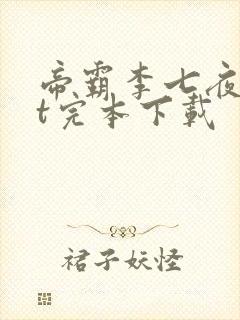 帝霸李七夜
t完本下载
裙子妖怪